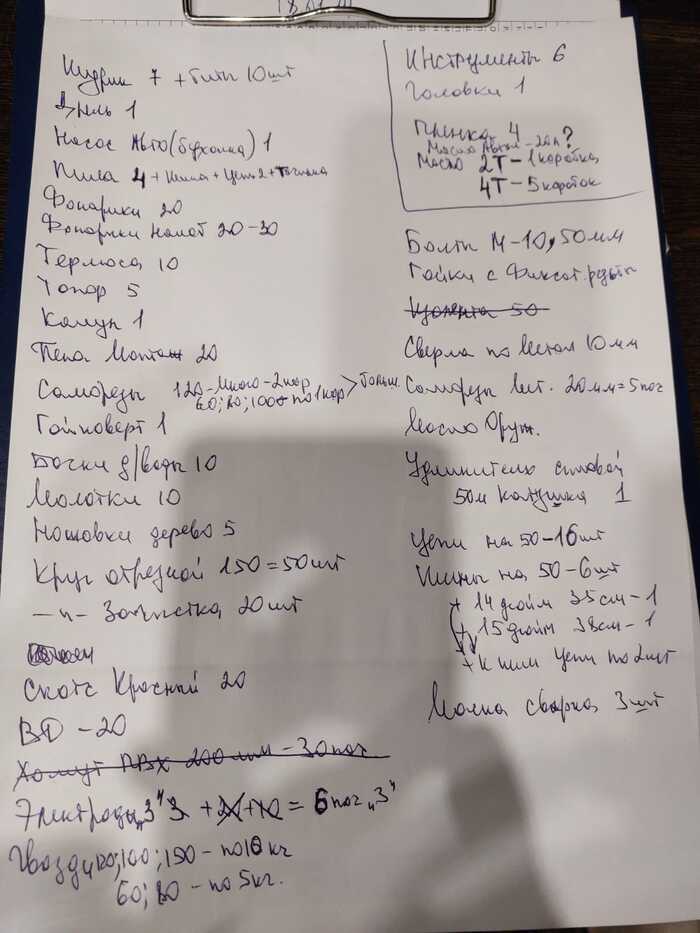 7 + Биты 10шт
Дрель 1
Насос Авто (буханка) 1
Пила 4 + шина + цепь 2 + точилка
Фонарики 20
Фонарики налоб 20-30
Термоса 10
Топор 5
Колун 1
Пена монтаж 20
Саморезы 120-много-2кор
60; 80; 100 по 1 кор > толщ.
Гайковерт 1
Бочки д/воды 10
Молотки 10
Ножовки дерево 5
Круг отрезной 150 = 50шт
-"- Зачистка 20шт
Скотч Красный 20
ВД - 20
Хомут ПВХ 200мм - 30пач
Электроды "3" 3 + = 6 пач "3"
Гвозди 120; 100; 150 - по 10 кг
60; 80 - по 5кг.
Инструменты 6
Головки 1
Пленка 4
Масло - 20л?
Масло 2Т - 1коробка
4Т - 5коробок
Болты М-10, 50мм
Гайки с Фиксат.
Изолента 50
Сверла по метал 10мм
Саморезы мет. 20мм = 5пач
Масло Оруж.
Удлинитель силовой
50м катушка 1
Цепи на 50-16шт
Шины на 50-6шт
+ 14 дюйм 35см-1
+ 15 дюйм 38см-1
+ к ним цепи по 2шт
Маска сварка 3шт